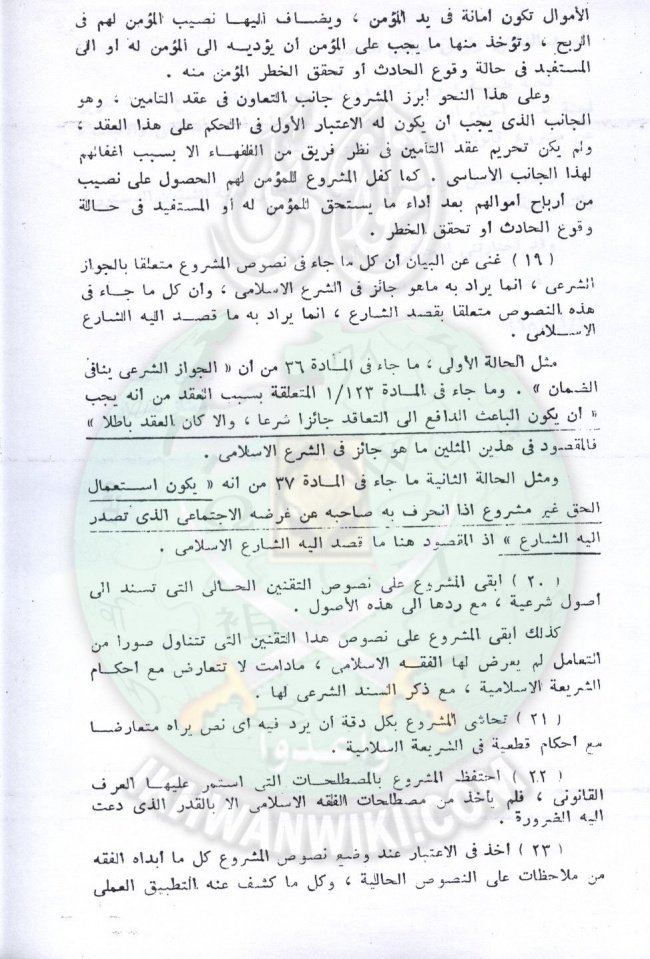 الأموال تكون أمانة فى يد المؤمن ، ويضاف اليها نصيب المؤمن لهم فى
الربح ، وتؤخذ منها ما يجب على المؤمن أن يؤديه الى المؤمن له او الى
المستفيد فى حالة وقوع الحادث أو تحقق الخطر المؤمن منه .
وعلى هذا النحو أبرز المشروع جانب التعاون فى عقد التأمين ، وهو
الجانب الذى يجب ان يكون له الاعتبار الأول فى الحكم على هذا العقد ،
ولم يكن تحريم عقد التأمين فى نظر فريق من الفقهاء الا بسبب اغفالهم
لهذا الجانب الاساسى . كما كفل المشروع للمؤمن لهم الحصول على نصيب
من أرباح أموالهم بعد أداء ما يستحق المؤمن له أو المستفيد فى حالة
وقوع الحادث أو تحقق الخطر .
( ١٩ ) غنى عن البيان أن كل ما جاء فى نصوص المشروع متعلقا بالجواز
الشرعى ، انما يراد به ماهو جائز فى الشرع الاسلامى ، وأن كل ما جاء فى
هذه النصوص متعلقا بقصد الشارع ، انما يراد به ما قصد اليه الشارع
الاسلامى .
مثل الحالة الأولى ، ما جاء فى المادة ٣٦ من أن « الجواز الشرعى ينافى
الضمان » . وما جاء فى المادة ١/١٢٣ المتعلقة بسبب العقد من أنه يجب
« أن يكون الباعث الدافع الى التعاقد جائزا شرعا ، والا كان العقد باطلا »
فالمقصود فى هذين المثلين ما هو جائز فى الشرع الاسلامى .
ومثل الحالة الثانية ما جاء فى المادة ٣٧ من أنه « يكون استعمال
الحق غير مشروع اذا انحرف به صاحبه عن غرضه الاجتماعى الذى تصدر
اليه الشارع » اذ المقصود هنا ما قصد اليه الشارع الاسلامى .
( ٢٠ ) ابقى المشروع على نصوص التقنين الحالى التى تسند الى
أصول شرعية ، مع ردها الى هذه الأصول .
كذلك ابقى المشروع على نصوص هذا التقنين التى تتناول صورا من
التعامل لم يعرض لها الفقه الاسلامى ، مادامت لا تتعارض مع أحكام
الشريعة الاسلامية ، مع ذكر السند الشرعى لها .
( ٢١ ) تحاشى المشروع بكل دقة أن يرد فيه اى نص يراه متعارضا
مع احكام قطعية فى الشريعة السلامية .
( ٢٢ ) احتفظ المشروع بالمصطلحات التى استمر عليها العرف
القانونى ، فلم يأخذ من مصطلحات الفقه الاسلامى الا بالقدر الذى دعت
اليه الضرورة .
( ٢٣ ) أخذ فى الاعتبار عند وضع نصوص المشروع كل ما أبداه الفقه
من ملاحظات على النصوص الحالية ، وكل ما كشف عنه التطبيق العملى
وأعدوا
IKHWANWIKI.COM